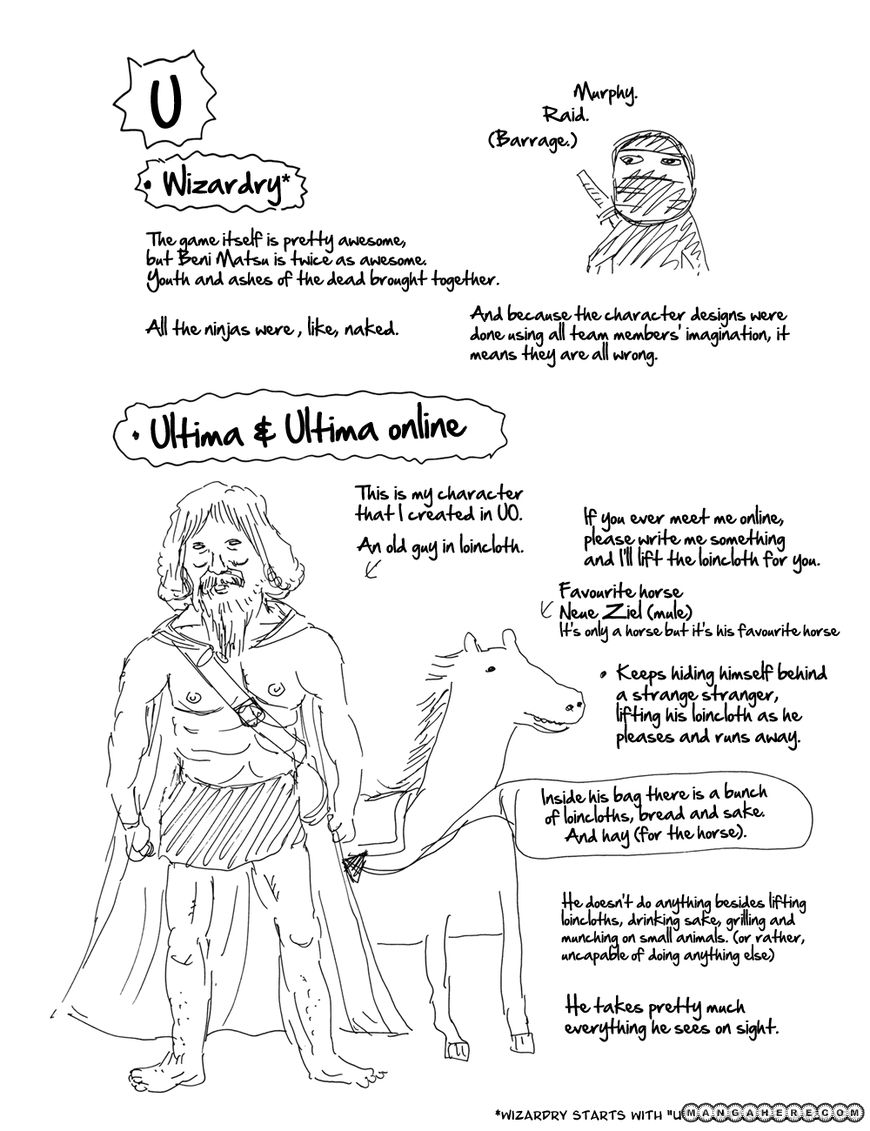 U
Murphy.
Raid.
(Barrage.)
• Wizardry*
The game itself is pretty awesome,
but Beni Matsu is twice as awesome.
Youth and ashes of the dead brought together.
All the ninjas were, like, naked.
And because the character designs were
done using all team members' imagination, it
means they are all wrong.
• Ultima & Ultima online
This is my character
that I created in UO.
An old guy in loincloth.
If you ever meet me online,
please write me something
and I'll lift the loincloth for you.
Favourite horse
Neue Ziel (mule)
It's only a horse but it's his favourite horse
• Keeps hiding himself behind
a strange stranger,
lifting his loincloth as he
pleases and runs away.
Inside his bag there is a bunch
of loincloths, bread and sake.
And hay (for the horse).
He doesn't do anything besides lifting
loincloths, drinking sake, grilling and
munching on small animals. (or rather,
uncapable of doing anything else)
He takes pretty much
everything he sees on sight.
*WIZARDRY STARTS WITH "U
MANGAHERE.COM